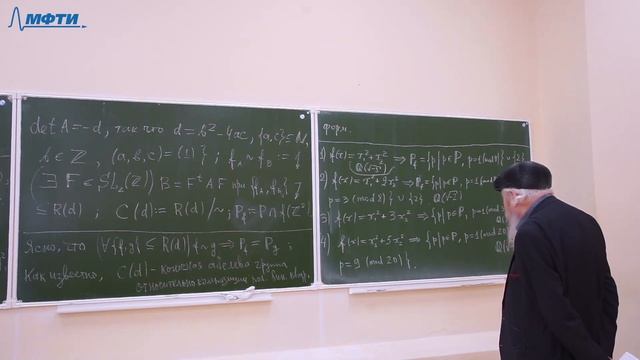 МФТИ
det A = -d, так что d = b² - 4ac, {a,c} ⊆ ℕ,
b ∈ ℤ, (a,b,c) = (1)}; f_A ~ f_B := f
(∃ F ∈ SL₂(ℤ)) B = Fᵗ A F при f_A, f_B} 
⊆ R(d); C(d) := R(d)/~; P_f = P ∩ f(ℤ²).
Ясно, что (∀{f,g} ⊆ R(d)) f ~ g ⇒ P_f = P_g;
Как известно, C(d) - конечная абелева группа
относительно композиции
форм.
1) f(x) = x₁² + x₂² ⇒ P_f = {p | p ∈ P, p ≡ 1 (mod 4)} ∪ {2}
2) f(x) = x₁² + 2x₂² ⇒ P_f = {p | p ∈ P, p ≡ 1 (mod
p ≡ 3 (mod 8)} ∪ {2}
3) f(x) = x₁² + 3x₂² ⇒ {p | p ∈ P, p ≡ 1 (mod
4) f(x) = x₁² + 5x₂² ⇒ {p | p ∈ P, p ≡ 1 (mod 20)
p ≡ 9 (mod 20)}.